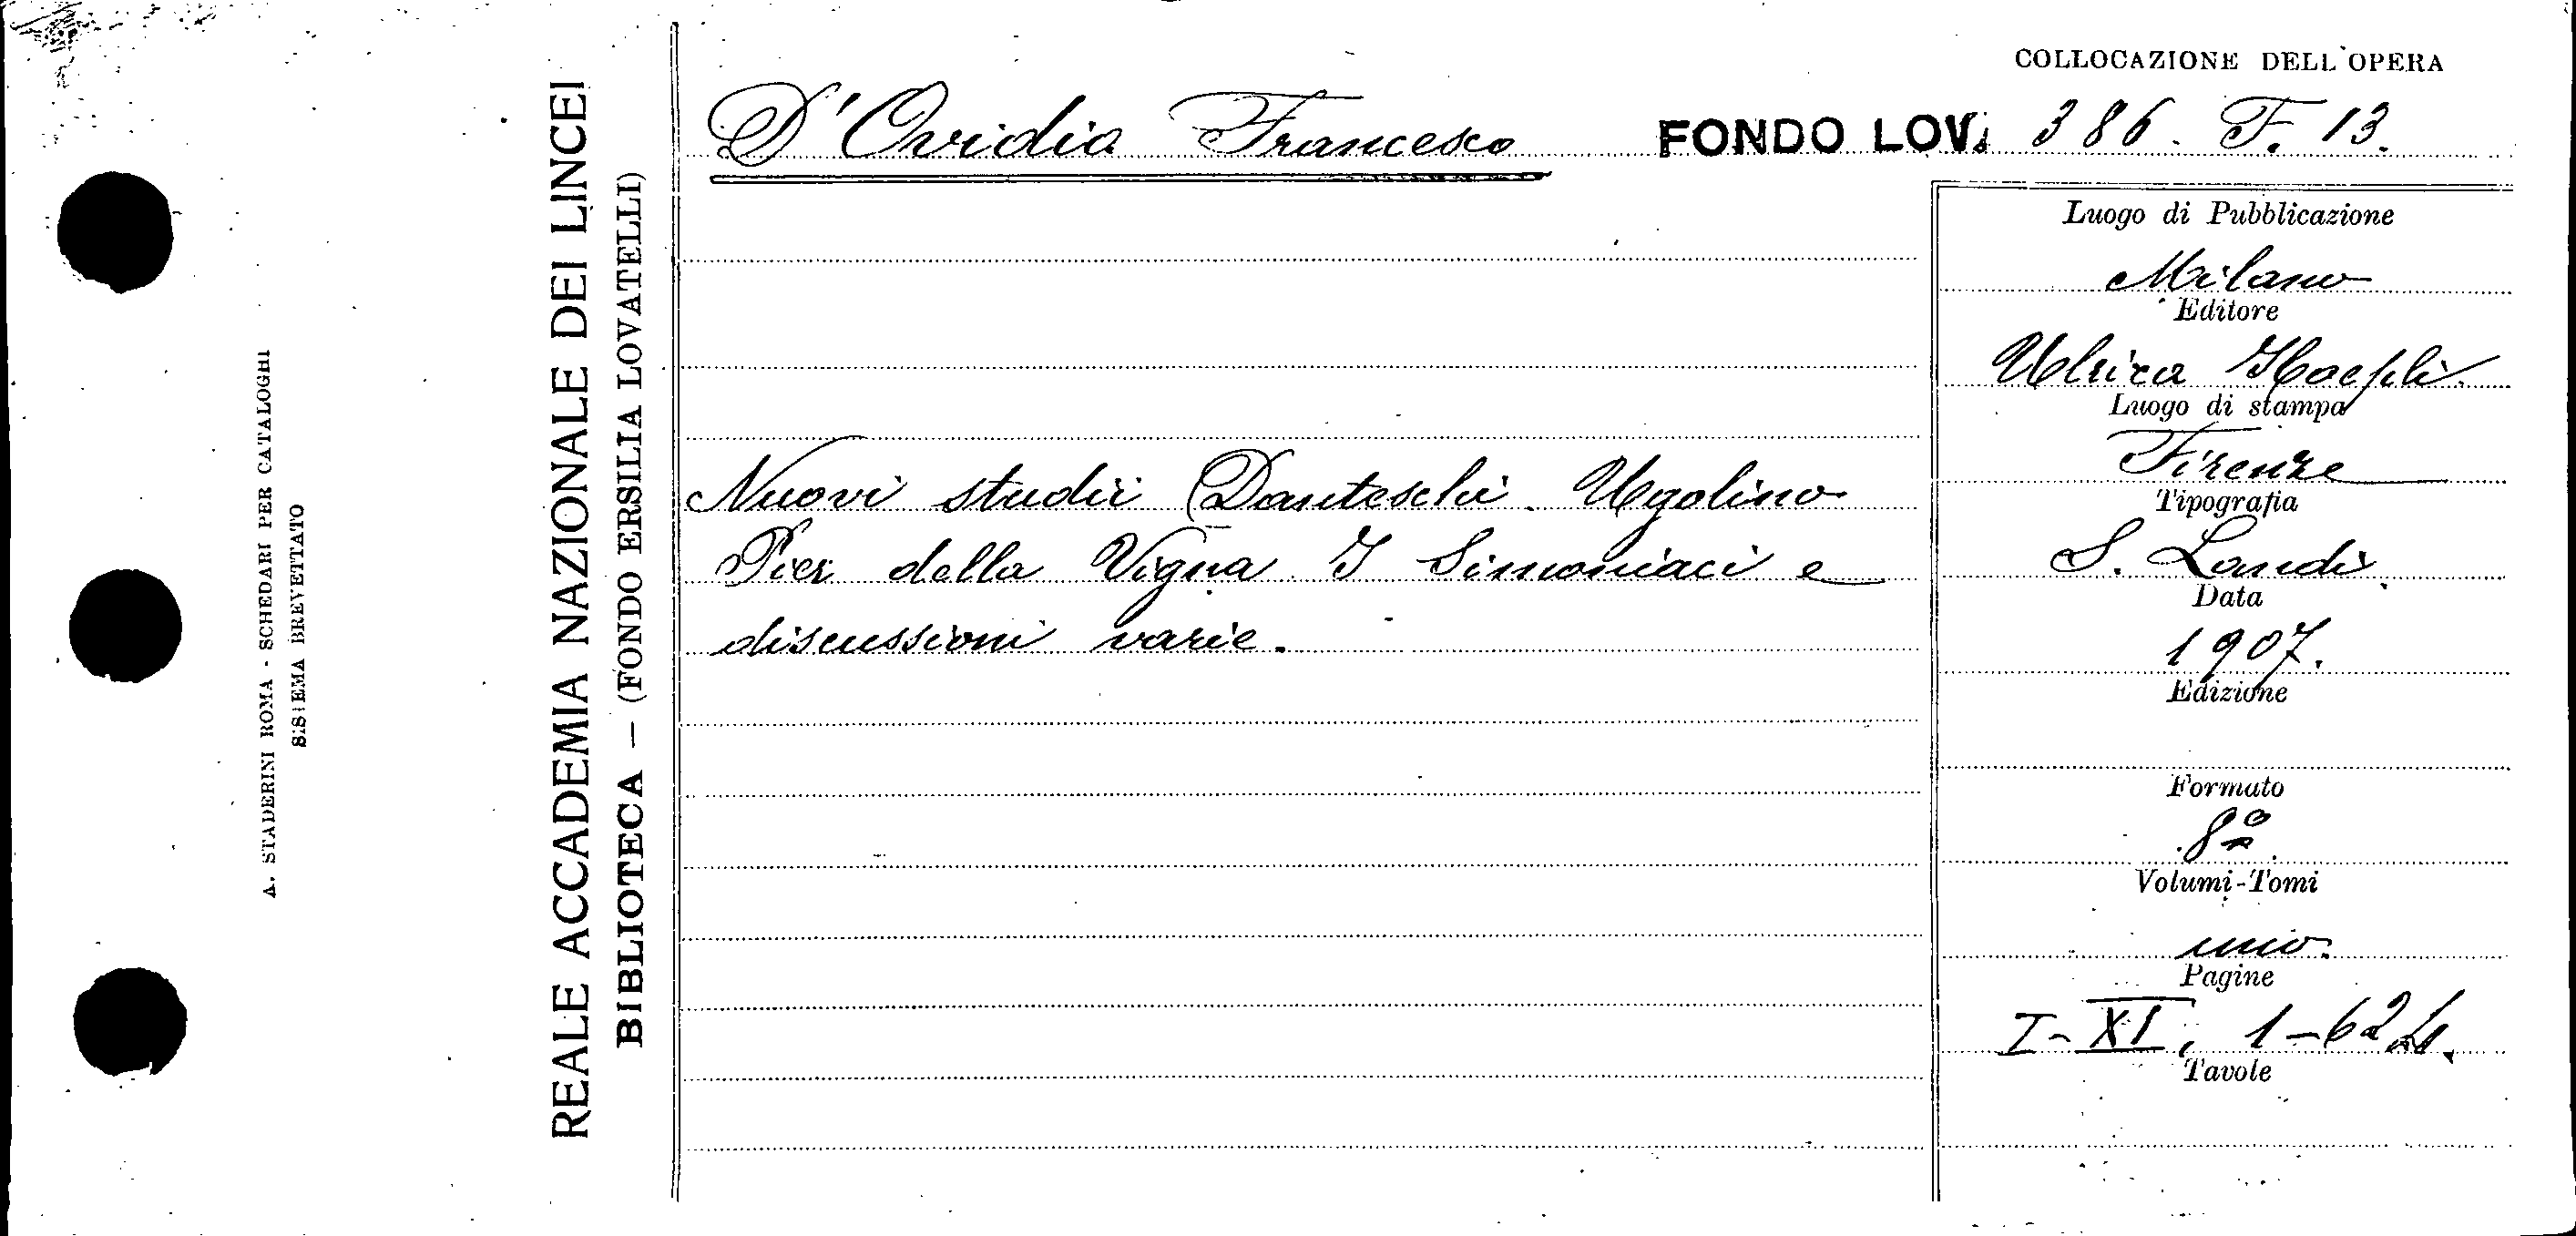 A. STADERINI ROMA - SCHEDARI PER CATALOGHI
SISTEMA BREVETTATO
REALE ACCADEMIA NAZIONALE DEI LINCEI
BIBLIOTECA — (FONDO ERSILIA LOVATELLI)
COLLOCAZIONE DELL'OPERA
D'Ovidio Francesco
FONDO LOV. 386. F. 13.
Nuovi studii Danteschi. Ugolino
Pier della Vigna I Simoniaci e
discussioni varie.
Luogo di Pubblicazione
Milano
Editore
Ulrico Hoepli
Luogo di stampa
Firenze
Tipografia
S. Landi.
Data
1907.
Edizione
Formato
8º
Volumi-Tomi
uno.
Pagine
I-XI; 1-624.
Tavole